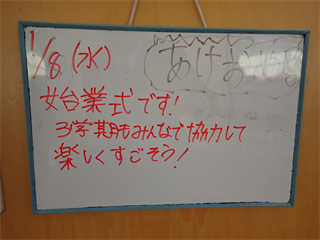 1/8(水)
あけお
始業式です!
3学期もみんなで協力して
楽しくすごそう!